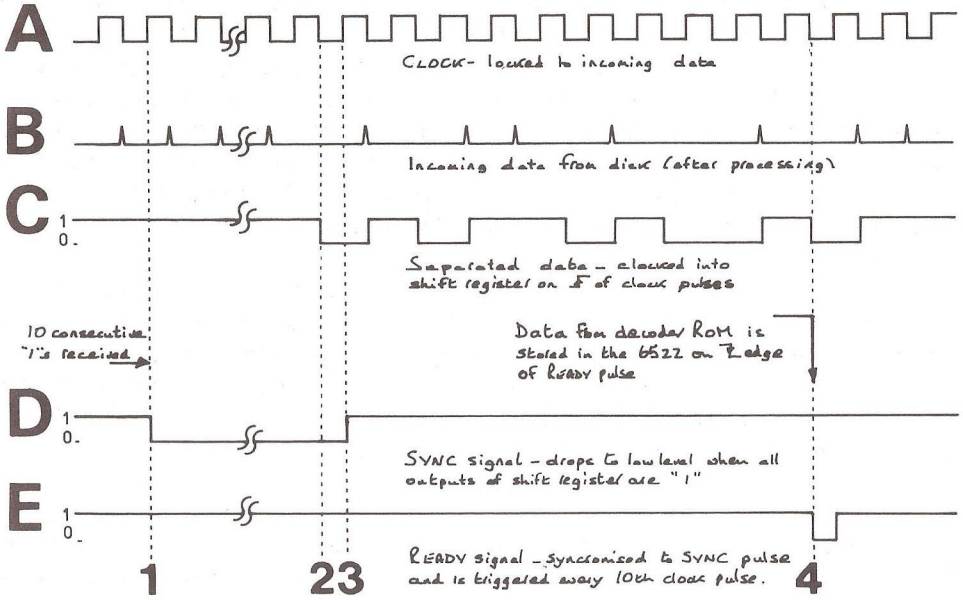 A
CLOCK - locked to incoming data
B
Incoming data from disk (after processing)
C
1
0
Separated data - clocked into
shift register on of clock pulses
10 consecutive
"1"s received
Data from decoder ROM is
stored in the 6522 on edge
of READY pulse
D
1
0
SYNC signal - drops to low level when all
outputs of shift register are "1"
E
1
0
READY signal - syncronised to SYNC pulse
and is triggered every 10th clock pulse.
1
2
3
4